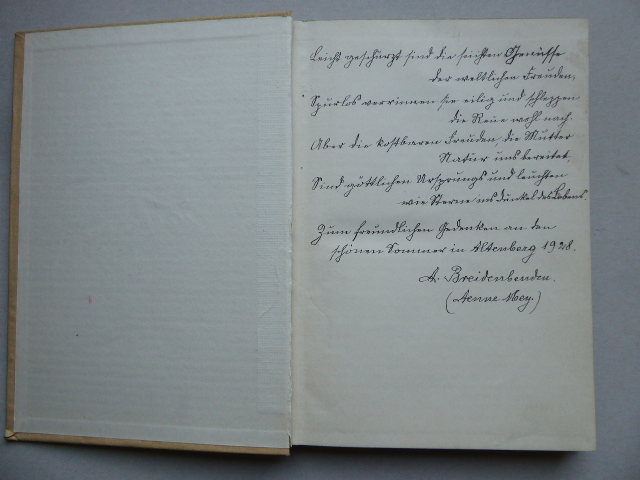 Leicht geschürzt sind die seichten Genüsse
der weltlichen Freuden,
Spurlos verrinnen sie eilig und schleppen
die Reue wohl nach.
Aber die kostbaren Freuden, die Mutter
Natur uns bereitet,
Sind göttlichen Ursprungs und leuchten
wie Sterne ins Dunkel des Lebens.
Zum freundlichen Gedenken an den
schönen Sommer in Altenberg 1928.
A. Breidenbenden.
(Aenne Mey.)